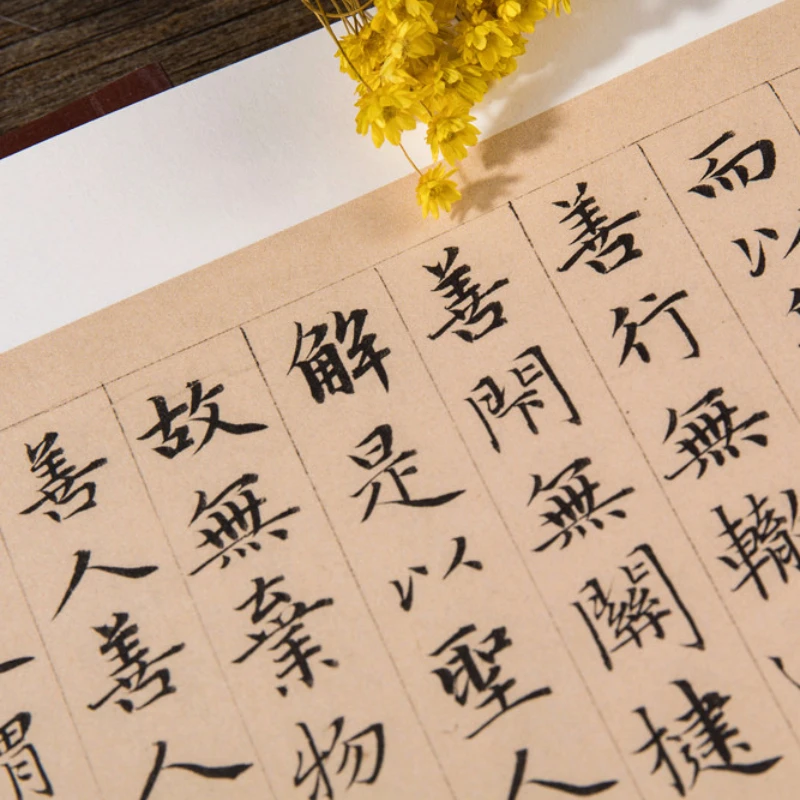 而以
善行無轍
善閇無關楗
解是以聖人
故無棄物
善人善人
謂